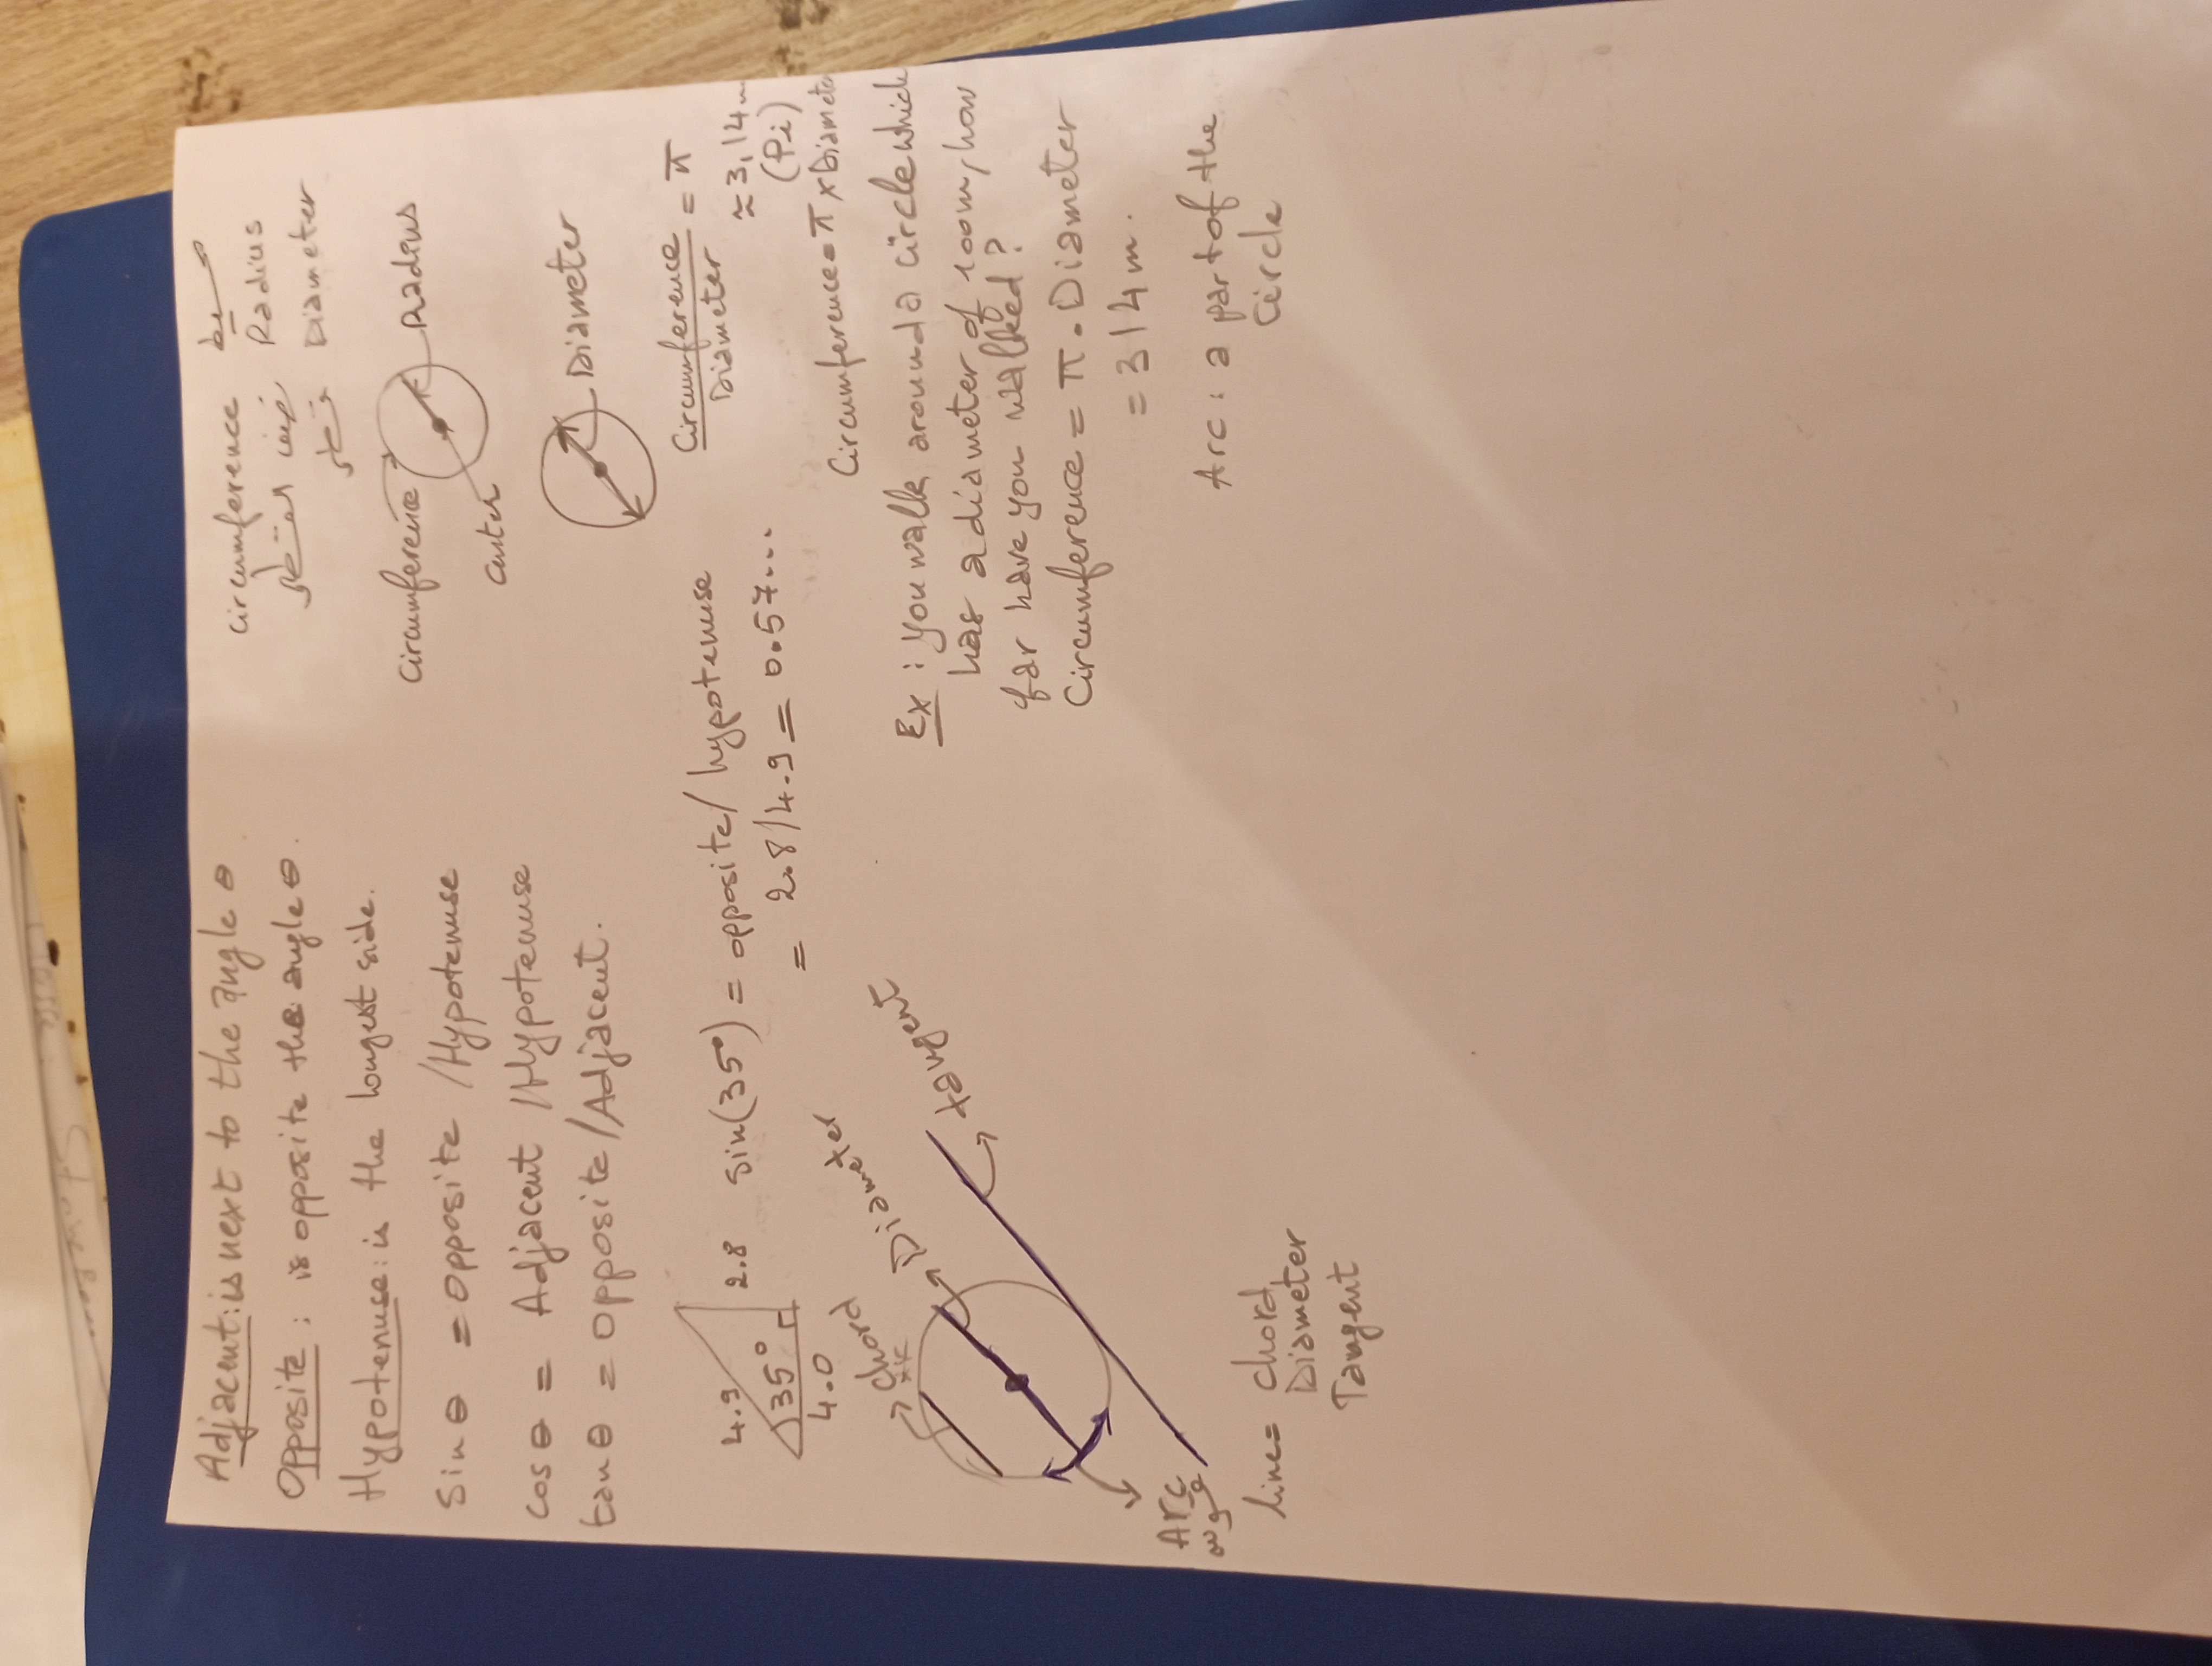 Adjacent: is next to the angle θ
Opposite: is opposite the angle θ.
Hypotenuse: is the longest side.
Sin θ = opposite / Hypotenuse
cos θ = Adjacent / Hypotenuse
tan θ = opposite / Adjacent.
4.9
35°
2.8
4.0
sin(35°) = opposite / hypotenuse
= 2.8 / 4.9 = 0.57...
chord
Diameter
tangent
Arc
line = chord
Diameter
Tangent
circumference
Radius
Diameter
Circumference
center
Radius
Diameter
Circumference / Diameter = π
≈ 3,14
(Pi)
Circumference = π x Diameter
Ex : You walk around a circle which
has a diameter of 100m, how
far have you walked ?
Circumference = π . Diameter
= 314 m.
Arc : a part of the
circle